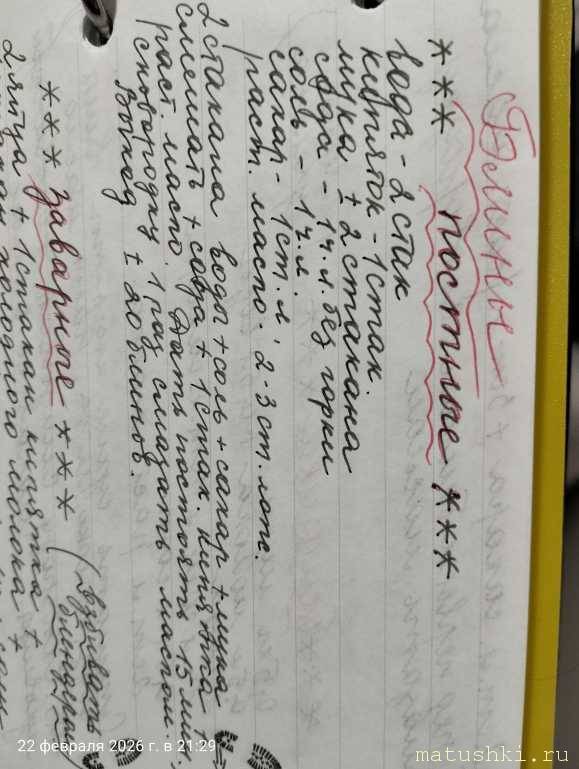 Блины
*** постные ***
вода - 2 стак
кипяток - 1 стак.
мука ± 2 стакана
сода - 1 ч.л. без горки
соль - 1 ч.л.
сахар - 1 ст.л.
раст. масло. 2-3 ст. лож.
2 стакана воды + соль + сахар + мука
смешать + сода + 1 стак. кипятка
раст. масло. Дать постоять 15 мин.
сковородку 1 раз смазать маслом.
Выход ± 20 блинов.
*** заварные *** (Взбивать блендером)
2 яйца + 1 стакан кипятка +
холодного молока +
22 февраля 2026 г. в 21:29
matushki.ru